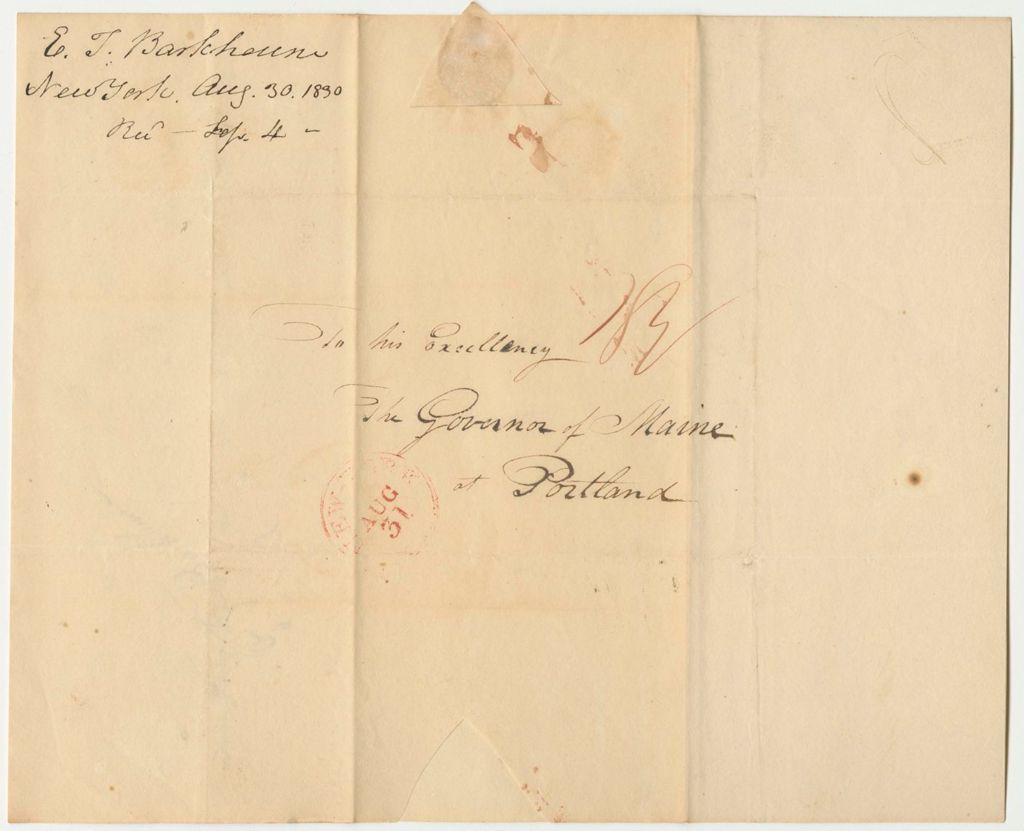 E. T. Barkhouse
New York. Aug. 30. 1830
Rec'd — Sep. 4 —
To his Excellency
The Governor of Maine
at Portland
AUG
31